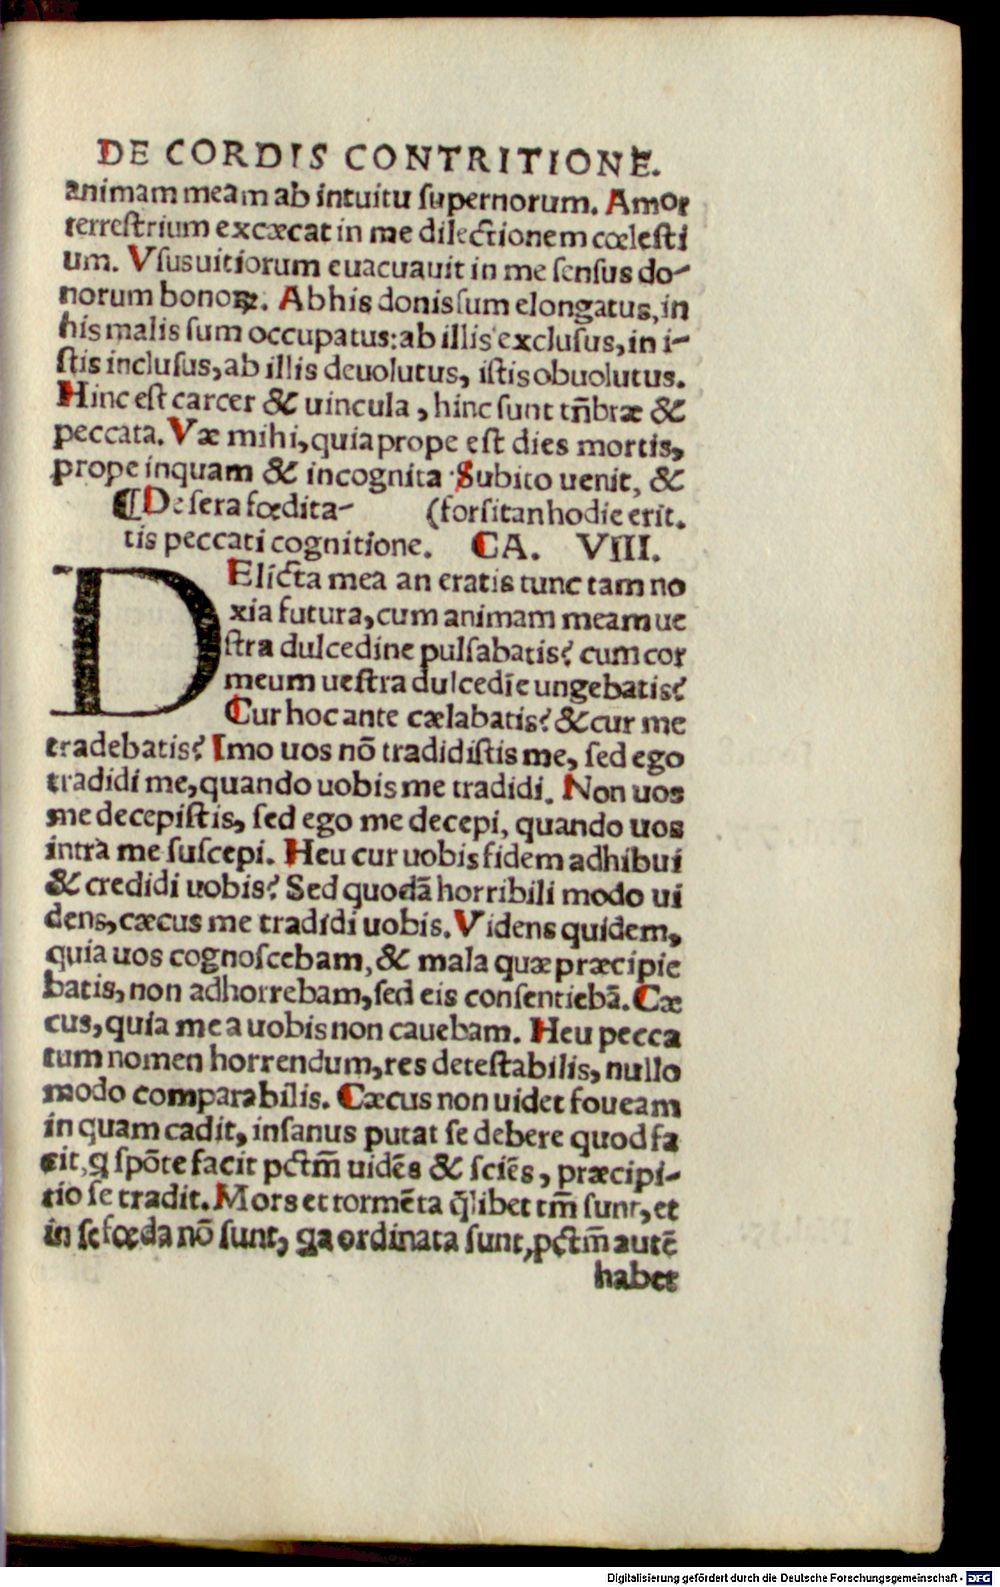 DE CORDIS CONTRITIONE.
animam meam ab intuitu ſupernorum. Amor
terreſtrium excæcat in me dilectionem cœleſti
um. Vſus uitiorum euacuauit in me ſenſus do-
norum bonoꝝ. Ab his donis ſum elongatus, in
his malis ſum occupatus: ab illis excluſus, in i-
ſtis incluſus, ab illis deuolutus, iſtis obuolutus.
Hinc eſt carcer & uincula, hinc ſunt tn̄bræ &
peccata. Væ mihi, quia prope eſt dies mortis,
prope inquam & incognita. Subito uenit, &
¶ De ſera fœdita- (forſitan hodie erit.
tis peccati cognitione. CA. VIII.
DElicta mea an eratis tunc tam no
xia futura, cum animam meam ue
ſtra dulcedine pulſabatis? cum cor
meum ueſtra dulcedīe ungebatis?
Cur hoc ante cælabatis? & cur me
tradebatis? Imo uos nō tradidiſtis me, ſed ego
tradidi me, quando uobis me tradidi. Non uos
me decepiſtis, ſed ego me decepi, quando uos
intra me ſuſcepi. Heu cur uobis fidem adhibui
& credidi uobis? Sed quodā horribili modo ui
dens, cæcus me tradidi uobis. Videns quidem,
quia uos cognoſcebam, & mala quæ præcipie
batis, non adhorrebam, ſed eis conſentiebā. Cæ
cus, quia me a uobis non cauebam. Heu pecca
tum nomen horrendum, res deteſtabilis, nullo
modo comparabilis. Cæcus non uidet foueam
in quam cadit, inſanus putat ſe debere quod fa
cit, q ſpōte facit pctm̄ uidēs & ſciēs, præcipi-
tio ſe tradit. Mors et tormēta q̄libet tm̄ ſunt, et
in ſe fœda nō ſunt, qa ordinata ſunt, pctm̄ autē
habet
Digitalisierung gefördert durch die Deutsche Forschungsgemeinschaft - DFG